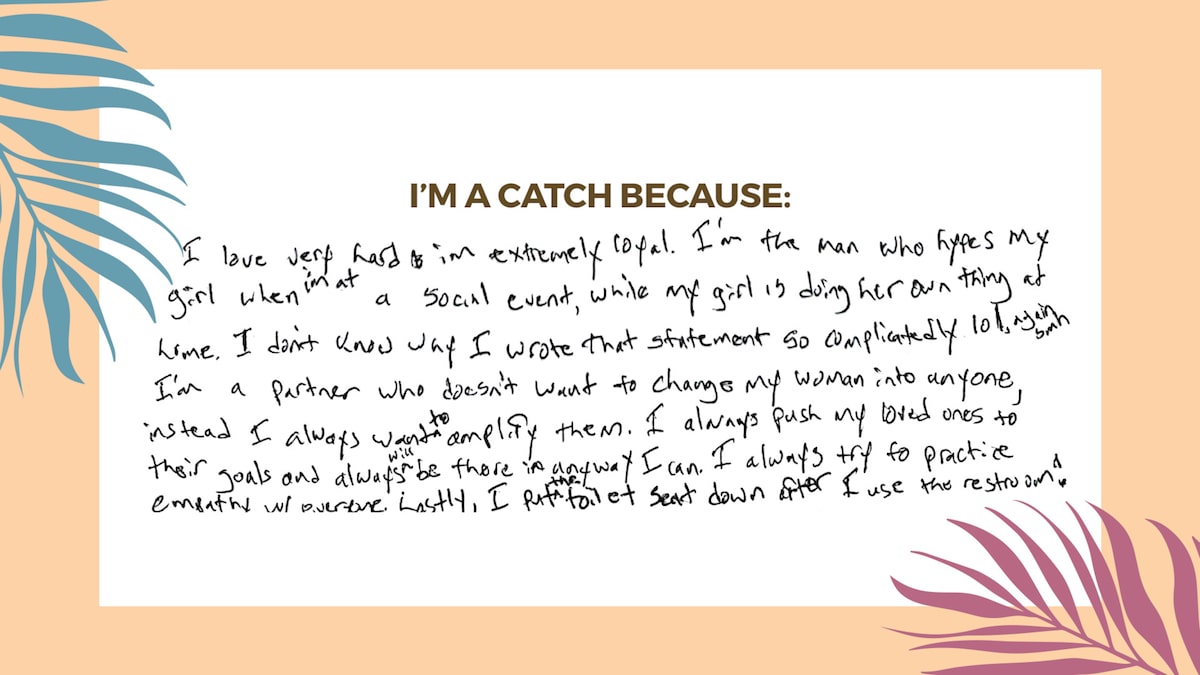 I'M A CATCH BECAUSE:
I love very hard & im extremely loyal. I'm the man who hypes my
girl when im at a social event, while my girl is doing her own thing at
home. I don't know way I wrote that statement so complicatedly lol, again smh
I'm a partner who doesn't want to change my woman into anyone,
instead I always want to amplify them. I always push my loved ones to
their goals and always will be there in anyway I can. I always try to practice
empathy w/ everyone. Lastly, I put the toilet seat down after I use the restroom!